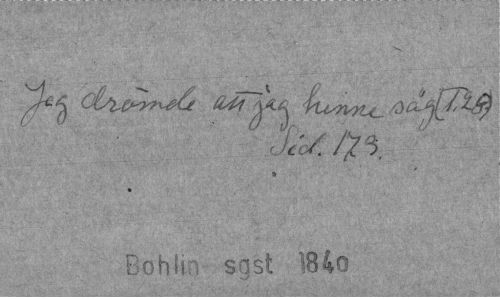 Jag drömde att jag henne såg (T.28)
Sid. 173.
Bohlin sgst 1840